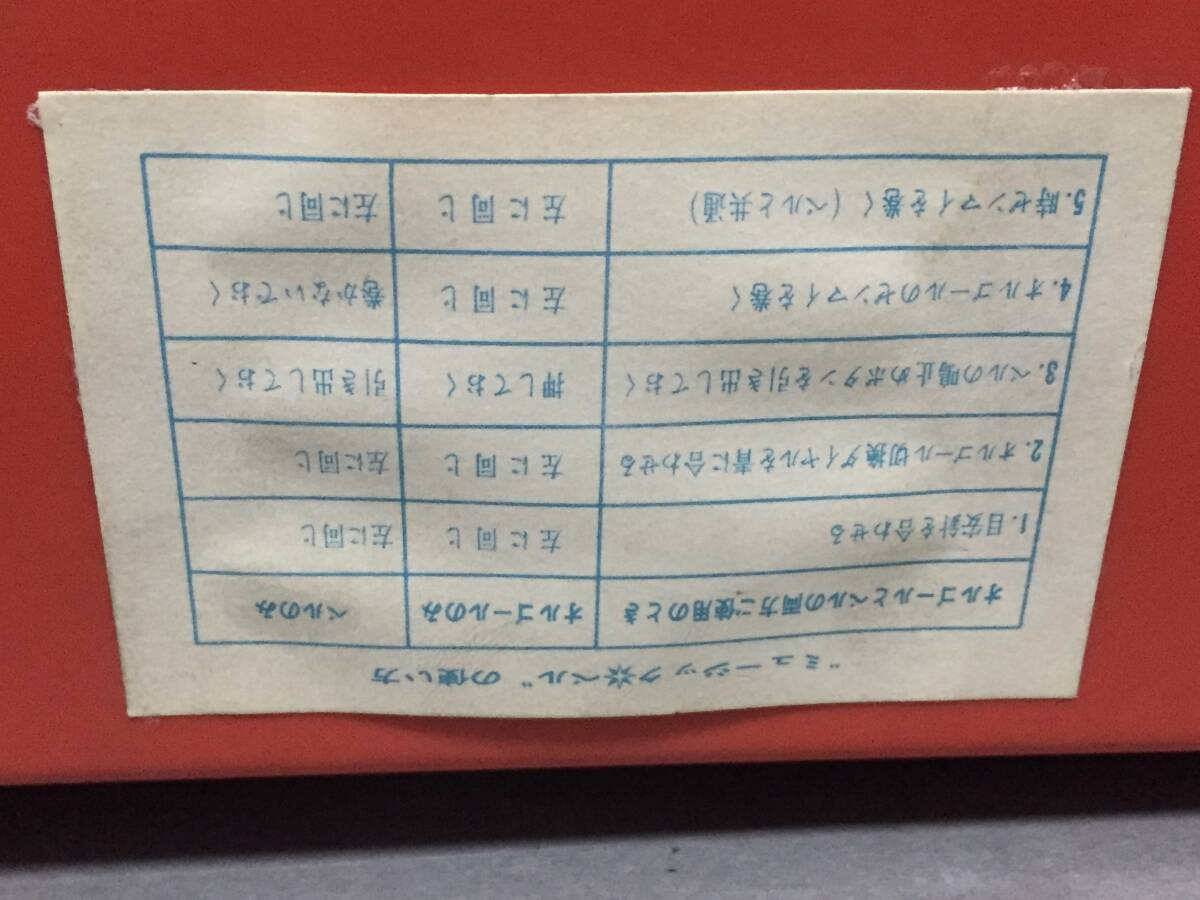 "ミュージック※ベル"の使い方
オルゴールとベルの両方ご使用のとき オルゴールのみ ベルのみ
1.目安針を合わせる 左に同じ 左に同じ
2.オルゴール切換ダイヤルを青に合わせる 左に同じ 左に同じ
3.ベルの鳴止めボタンを引き出しておく 押しておく 引き出しておく
4.オルゴールのゼンマイを巻く 左に同じ 巻かないでおく
5.時ゼンマイを巻く(ベルと共通) 左に同じ 左に同じ